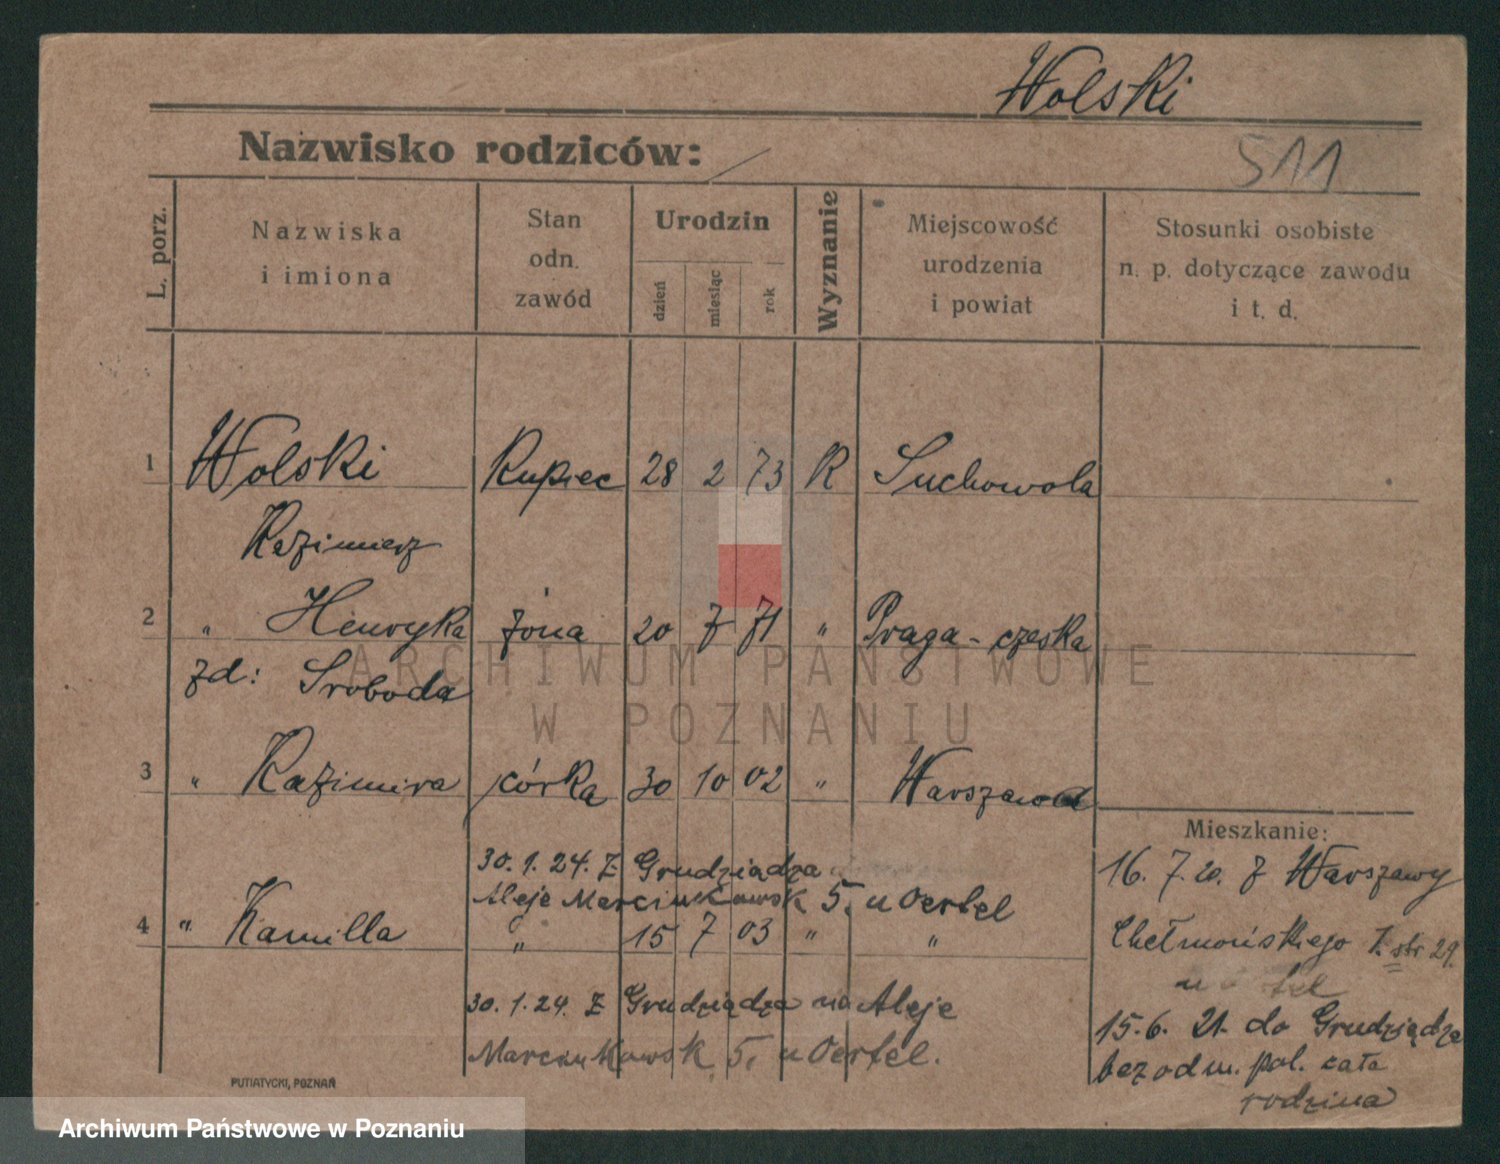 Wolski
511
Nazwisko rodziców:
L. porz.
Nazwiska
i imiona
Stan
odn.
zawód
Urodzin
dzień
miesiąc
rok
Wyznanie
Miejscowość
urodzenia
i powiat
Stosunki osobiste
n. p. dotyczące zawodu
i t. d.
1 Wolski Kupiec 28 2 73 R Suchowola
Kazimierz
2 " Henryka żona 20 7 71 " Praga-czeska
zd: Svoboda
3 " Kazimira córka 30 10 02 " Warszawa
30.1.24. Z Grudziądza
Aleje Marcinkowsk 5. u Oertel
4 " Kamilla " 15 7 03 " "
30.1.24. Z Grudziądza na Aleje
Marcinkowsk 5. u Oertel.
Mieszkanie:
16. 7. 20. z Warszawy
Chełmońskiego 7. str 29.
15.6. 21. do Grudziądza
bez odm. pol. cała
rodzina
PUTIATYCKI, POZNAŃ
ARCHIWUM PAŃSTWOWE
W POZNANIU
Archiwum Państwowe w Poznaniu